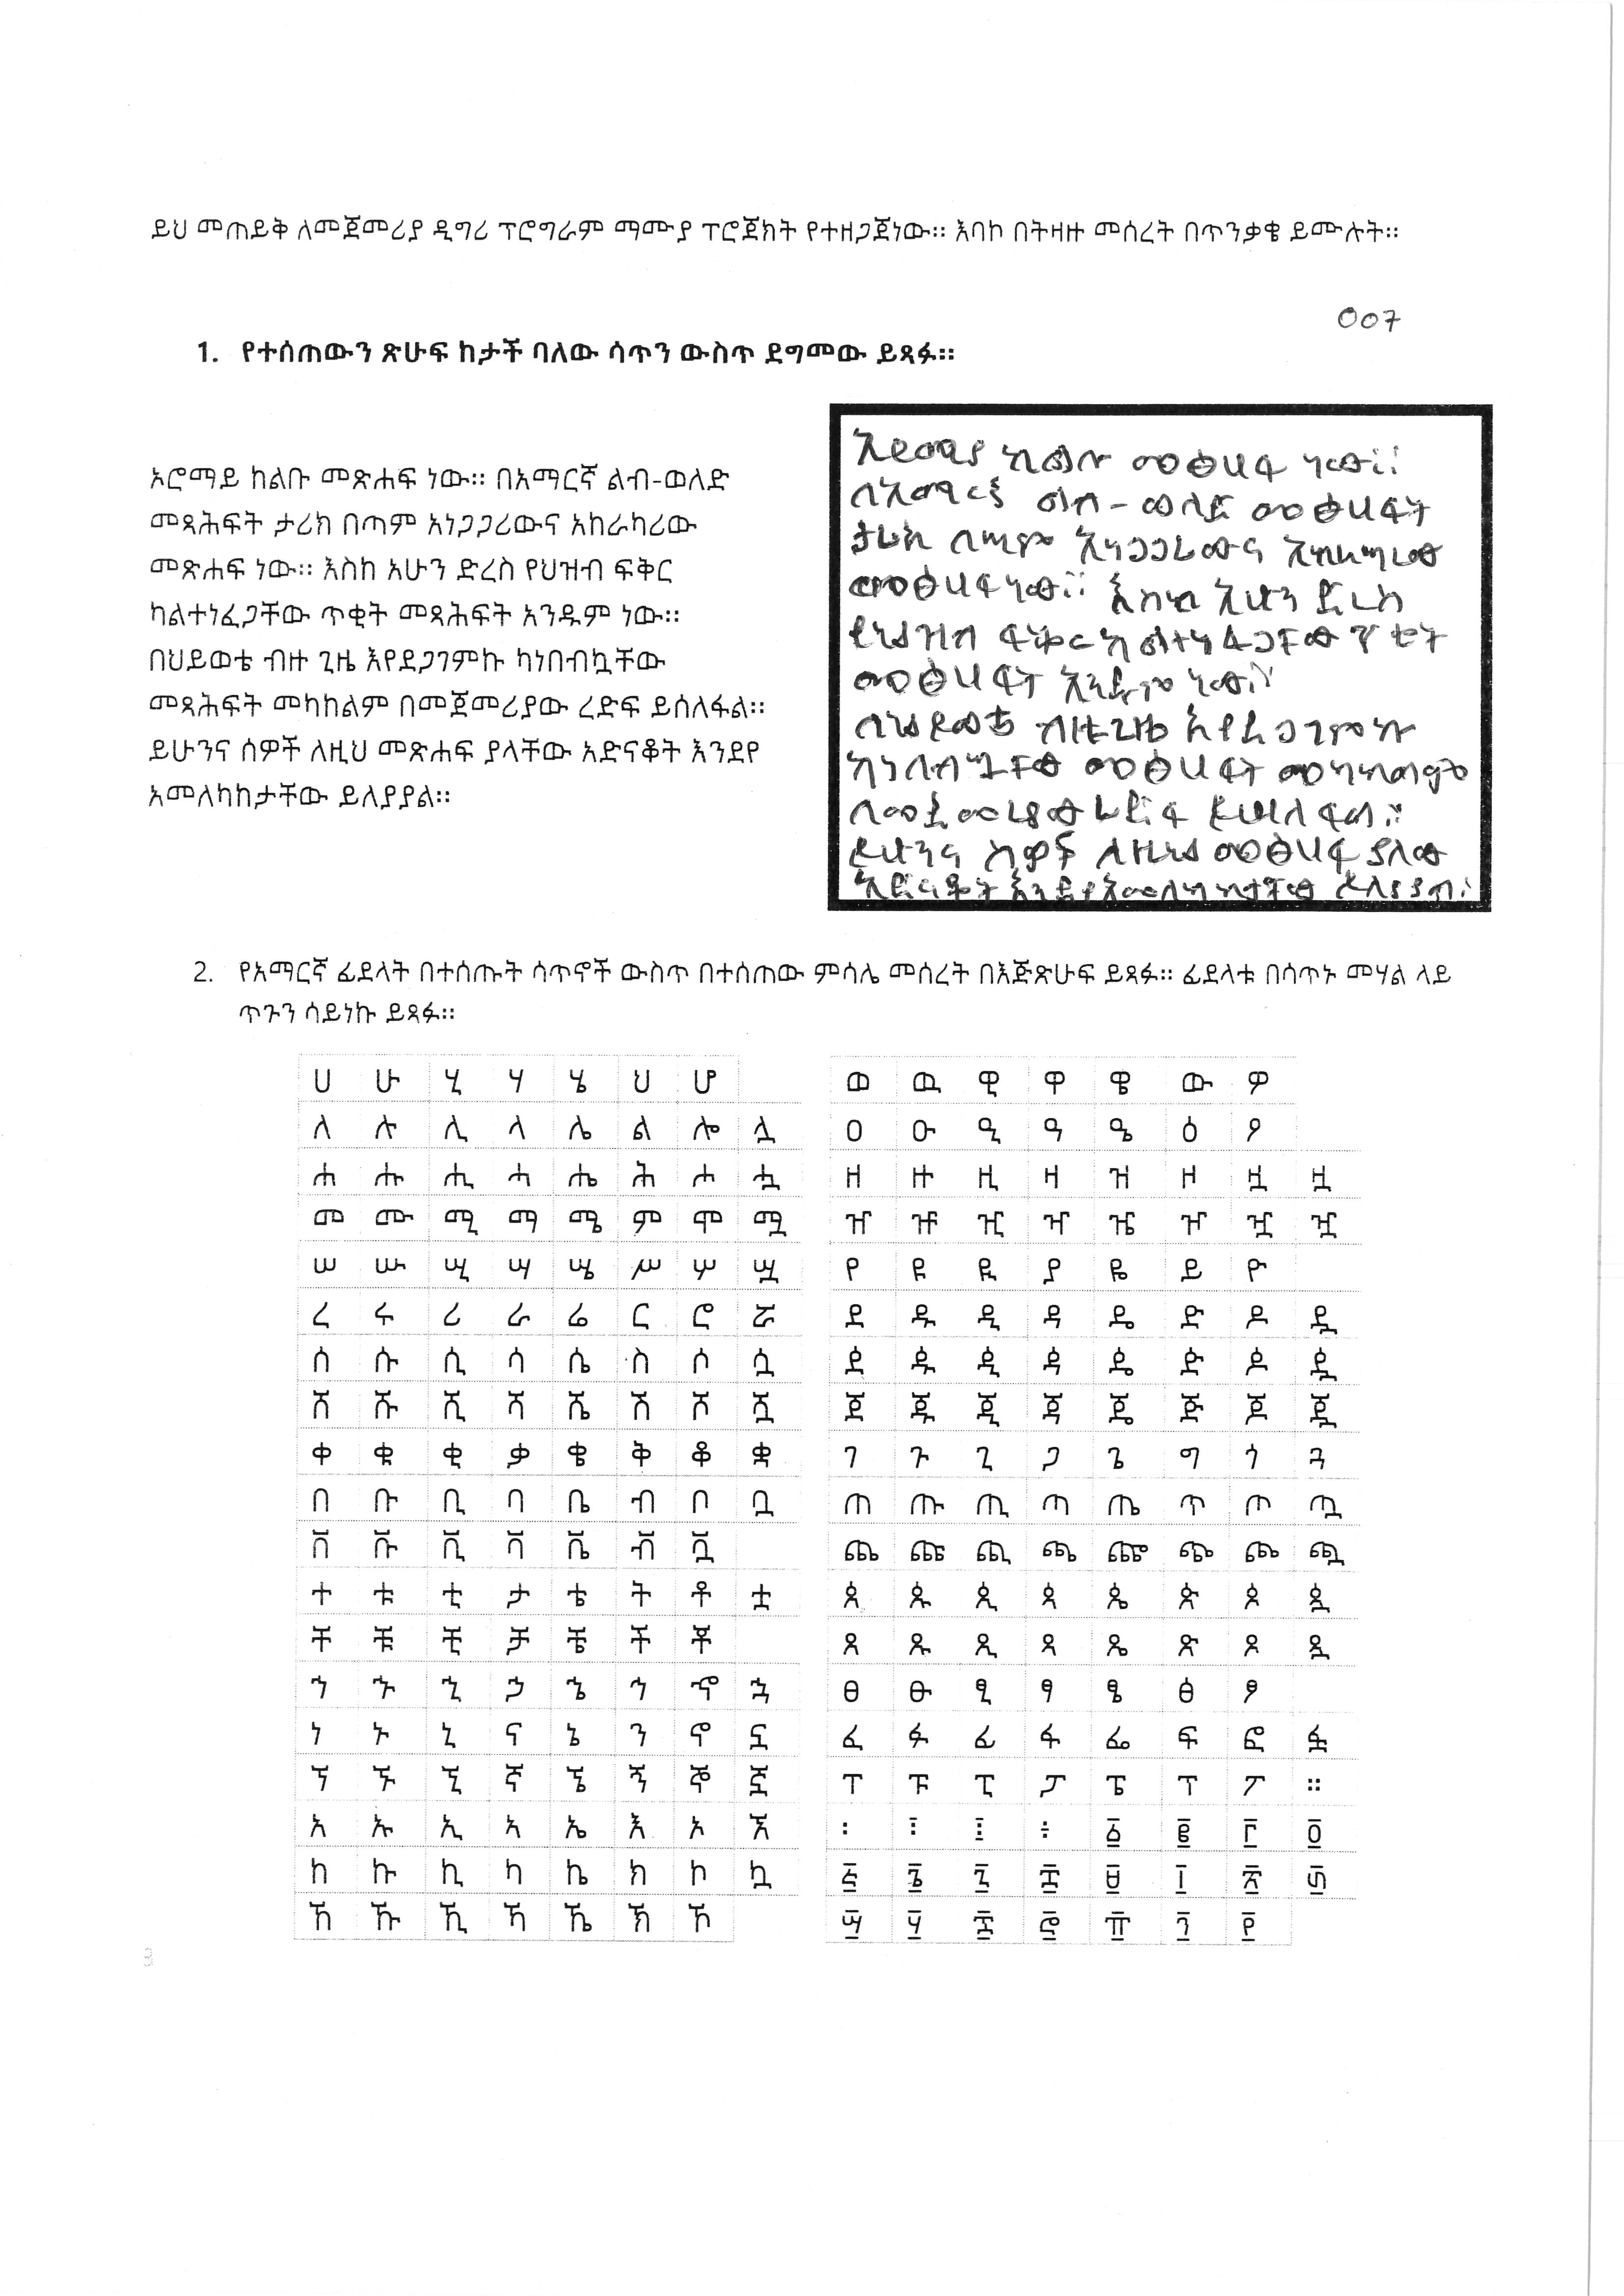 ይህ መጠይቅ ለመጀመሪያ ዲግሪ ፕሮግራም ማሙያ ፕሮጀክት የተዘጋጀነው። እባኮ በትዛዙ መሰረት በጥንቃቄ ይሙሉት።
007
1. የተሰጠውን ጽሁፍ ከታች ባለው ሳጥን ውስጥ ደግመው ይጻፉ።
ኦሮማይ ከልቡ መጽሐፍ ነው። በአማርኛ ልብ-ወለድ
መጻሕፍት ታሪክ በጣም አነጋጋሪውና አከራካሪው
መጽሐፍ ነው። እስከ አሁን ድረስ የህዝብ ፍቅር
ካልተነፈጋቸው ጥቂት መጻሕፍት አንዱም ነው።
በህይወቴ ብዙ ጊዜ እየደጋገምኩ ካነበብኳቸው
መጻሕፍት መካከልም በመጀመሪያው ረድፍ ይሰለፋል።
ይሁንና ሰዎች ለዚህ መጽሐፍ ያላቸው አድናቆት እንደየ
አመለካከታቸው ይለያያል።
ከልቡ መፅሀፋ ነው።
በአማርኛ ልብ-ወለድ መፅሀፍት
ታሪክ በጣም አነጋጋሪውና አከራካሪው
መፅሀፋ ነው። እስከ አሁን ድረስ
የህዝብ ፍቅር ካልተነፋጋቸው ጥቂት
መፅሀፍት አንዱም ነው።
በህይወቴ ብዙ ጊዜ እየደጋገምኩ
ካነበብኳቸው መፅሀፍት መካከልም
በመጀመሪያው ረድፍ ይሰለፋል።
ይሁንና ሰዎች ለዚህ መፅሀፋ ያለው
አድናቆት እንደየአመለካከታቸው ይለያያል።
2. የአማርኛ ፊደላት በተሰጡት ሳጥኖች ውስጥ በተሰጠው ምሳሌ መሰረት በእጅጽሁፍ ይጻፉ። ፊደላቱ በሳጥኑ መሃል ላይ
ጥጉን ሳይነኩ ይጻፉ።
ሀ ሁ ሂ ሃ ሄ ህ ሆ
ለ ሉ ሊ ላ ሌ ል ሎ ሏ
ሐ ሑ ሒ ሓ ሔ ሕ ሖ ሗ
መ ሙ ሚ ማ ሜ ም ሞ ሟ
ሠ ሡ ሢ ሣ ሤ ሥ ሦ ሧ
ረ ሩ ሪ ራ ሬ ር ሮ ሯ
ሰ ሱ ሲ ሳ ሴ ስ ሶ ሷ
ሸ ሹ ሺ ሻ ሼ ሽ ሾ ሿ
ቀ ቁ ቂ ቃ ቄ ቅ ቆ ቋ
በ ቡ ቢ ባ ቤ ብ ቦ ቧ
ቨ ቩ ቪ ቫ ቬ ቭ ቯ
ተ ቱ ቲ ታ ቴ ት ቶ ቷ
ቸ ቹ ቺ ቻ ቼ ች ቾ
ኀ ኁ ኂ ኃ ኄ ኅ ኆ ኋ
ነ ኑ ኒ ና ኔ ን ኖ ኗ
ኘ ኙ ኚ ኛ ኜ ኝ ኞ ኟ
አ ኡ ኢ ኣ ኤ እ ኦ ኧ
ከ ኩ ኪ ካ ኬ ክ ኮ ኳ
ኸ ኹ ኺ ኻ ኼ ኽ ኾ
ወ ዉ ዊ ዋ ዌ ው ዎ
ዐ ዑ ዒ ዓ ዔ ዕ ዖ
ዘ ዙ ዚ ዛ ዝ ዞ ዟ ዟ
ዠ ዡ ዢ ዣ ዤ ዠ ዧ ዧ
የ ዩ ዪ ያ ዬ ይ ዮ
ደ ዱ ዲ ዳ ዴ ድ ዶ ዷ
ዸ ዹ ዺ ዻ ዼ ዽ ዾ ዿ
ጀ ጁ ጂ ጃ ጄ ጅ ጆ ጇ
ገ ጉ ጊ ጋ ጌ ግ ጎ ጓ
ጠ ጡ ጢ ጣ ጤ ጥ ጦ ጧ
ጨ ጩ ጪ ጫ ጬ ጭ ጮ ጯ
ጰ ጱ ጲ ጳ ጴ ጵ ጶ ጷ
ጸ ጹ ጺ ጻ ጼ ጽ ጾ ጿ
ፀ ፁ ፂ ፃ ፄ ፅ ፆ
ፈ ፉ ፊ ፋ ፌ ፍ ፎ ፏ
ፐ ፑ ፒ ፓ ፔ ፕ ፖ ።
፡ ፤ ፧ ፥ ፩ ፪ ፫ ፬
፭ ፮ ፯ ፰ ፱ ፲ ፳ ፴
፵ ፶ ፷ ፸ ፹ ፺ ፻